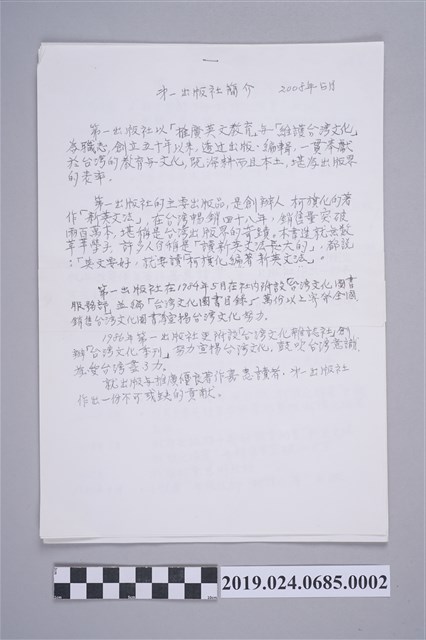 第一出版社簡介 2008年5月
第一出版社以「推廣英文教育」與「維護台灣文化」
為職志,創立五十年以來,透过出版、編輯,一貫奉獻
於台灣的教育与文化,既深耕而且本土,堪為出版界
的表率。
第一出版社的主要出版品,是創辦人柯旗化的著
作「新英文法」,在台灣暢銷四十八年,銷售量突破
兩百萬本,堪稱是台灣出版界的奇蹟。本書造就無數
莘莘學子,許多人自稱是「讀新英文法長大的」,都說
:「英文要好,就要讀柯旗化編著新英文法」。
第一出版社在1984年5月在社內附設「台灣文化圖書
服務部」並編「台灣文化圖書目錄」萬份以上寄給全國
銷售台灣文化圖書為宣揚台灣文化努力。
1986年第一出版社更附設「台灣文化雜誌社」創
辦「台灣文化季刊」努力宣揚台灣文化,鼓吹台灣意識
並愛台灣盡了力。
就出版与推廣優良著作嘉惠讀者,第一出版社
作出一份不可或缺的貢獻。
2019.024.0685.0002